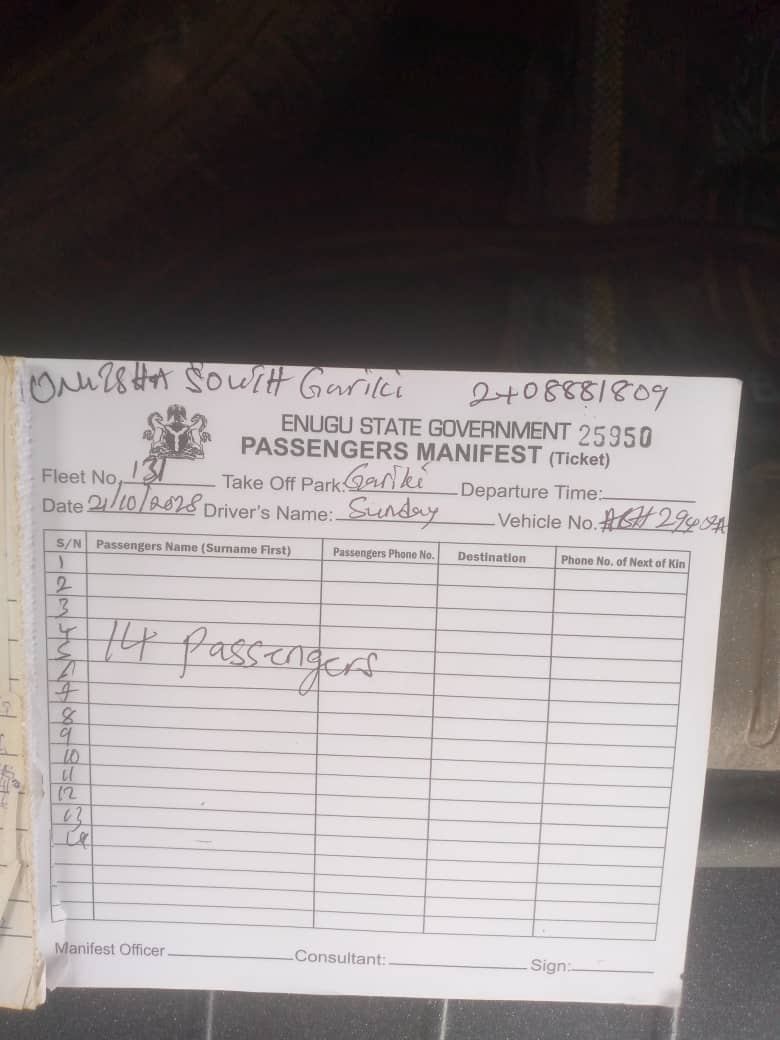 ONITSHA SOUTH Gariki 2408881809
ENUGU STATE GOVERNMENT 25950
PASSENGERS MANIFEST (Ticket)
Fleet No. 131 Take Off Park: Gariki Departure Time:
Date 21/10/2028 Driver's Name: Sunday Vehicle No.
S/N Passengers Name (Surname First) Passengers Phone No. Destination Phone No. of Next of Kin
1
2
3
4
5
6
7
14 Passengers
8
9
10
11
12
13
14
Manifest Officer Consultant: Sign: